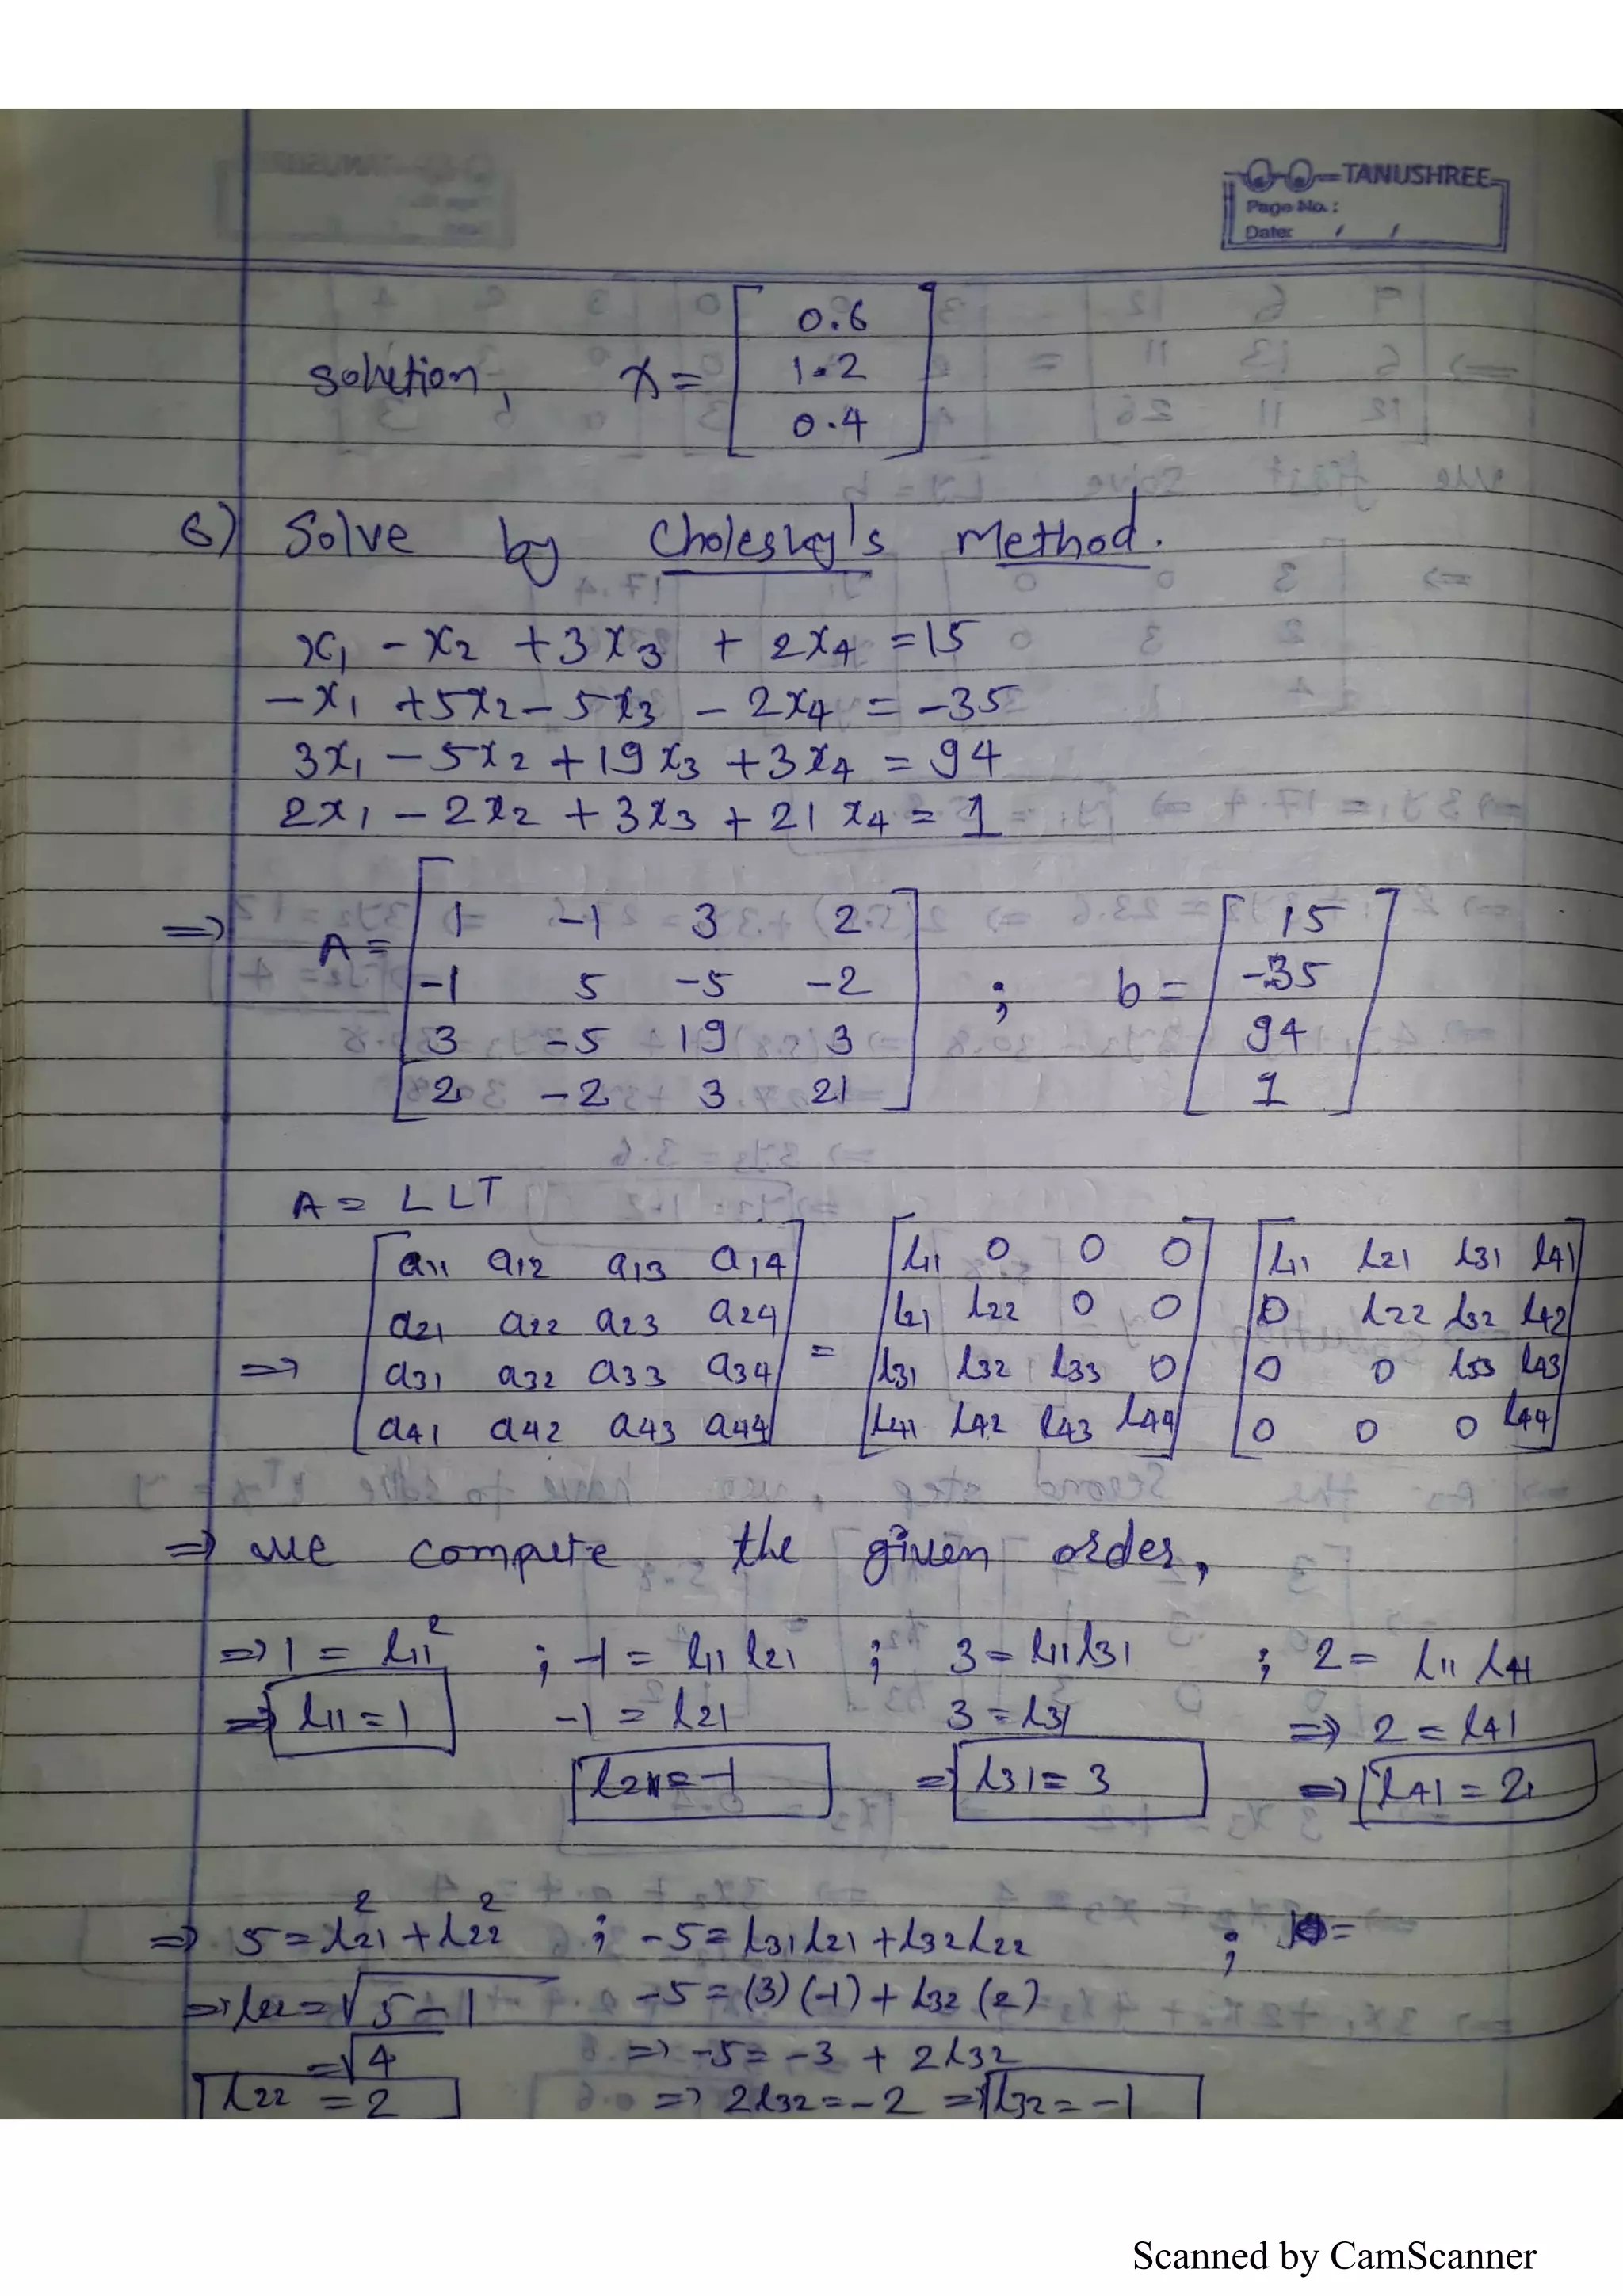 TANUSHREE
Page No.:
Date: / /
solution, x = [0.6
1.2
0.4]
6) Solve by Cholesky's Method.
x1 - x2 + 3x3 + 2x4 = 15
-x1 + 5x2 - 5x3 - 2x4 = -35
3x1 - 5x2 + 19x3 + 3x4 = 94
2x1 - 2x2 + 3x3 + 21x4 = 1
=> A = [1 -1 3 2 ; b = [15
-1 5 -5 -2 -35
3 -5 19 3 94
2 -2 3 21] 1]
A = LLT
=> [a11 a12 a13 a14 = [l11 0 0 0 [l11 l21 l31 l41
a21 a22 a23 a24 l21 l22 0 0 0 l22 l32 l42
a31 a32 a33 a34 l31 l32 l33 0 0 0 l33 l43
a41 a42 a43 a44] l41 l42 l43 l44] 0 0 0 l44]
=> we compute the given order,
=> 1 = l11² ; -1 = l11 l21 ; 3 = l11 l31 ; 2 = l11 l41
=> l11 = 1 -1 = l21 3 = l31 => 2 = l41
l21 = -1 => l31 = 3 => l41 = 2
=> 5 = l21² + l22² ; -5 = l31 l21 + l32 l22 ; =
=> l22 = √5-1 -5 = (3)(-1) + l32 (2)
= √4 => -5 = -3 + 2l32
l22 = 2 => 2l32 = -2 => l32 = -1
Scanned by CamScanner